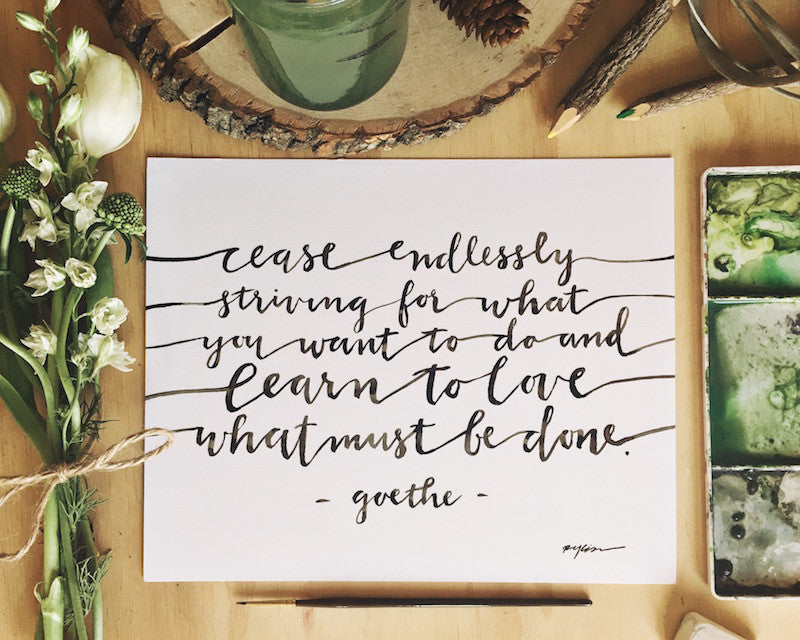 cease endlessly
striving for what
you want to do and
learn to love
what must be done.
- goethe -